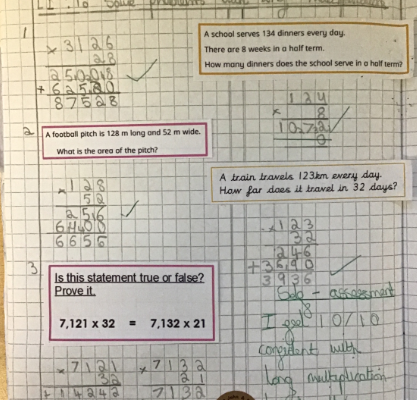 LI: To solve problems
1
× 3126
28
25008
+ 62520
87528
A school serves 134 dinners every day.
There are 8 weeks in a half term.
How many dinners does the school serve in a half term?
× 8
1072
2
A football pitch is 128 m long and 52 m wide.
What is the area of the pitch?
× 128
52
256
6400
6656
A train travels 123km every day.
How far does it travel in 32 days?
× 123
32
246
+ 3690
3936
3
Is this statement true or false?
Prove it.
7,121 x 32 = 7,132 x 21
assessment
I feel 10/10
confident with
long multiplication
× 7121
32
+ 14242
× 7132
21
7132